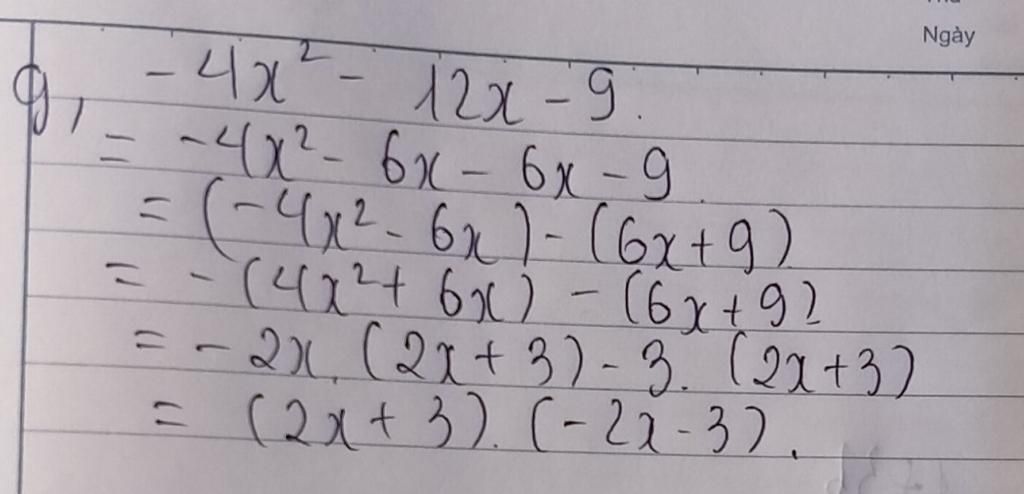 Ngày
g, -4x² - 12x - 9.
= -4x² - 6x - 6x - 9
= (-4x² - 6x) - (6x + 9)
= - (4x² + 6x) - (6x + 9)
= - 2x. (2x + 3) - 3. (2x + 3)
= (2x + 3). (-2x - 3).